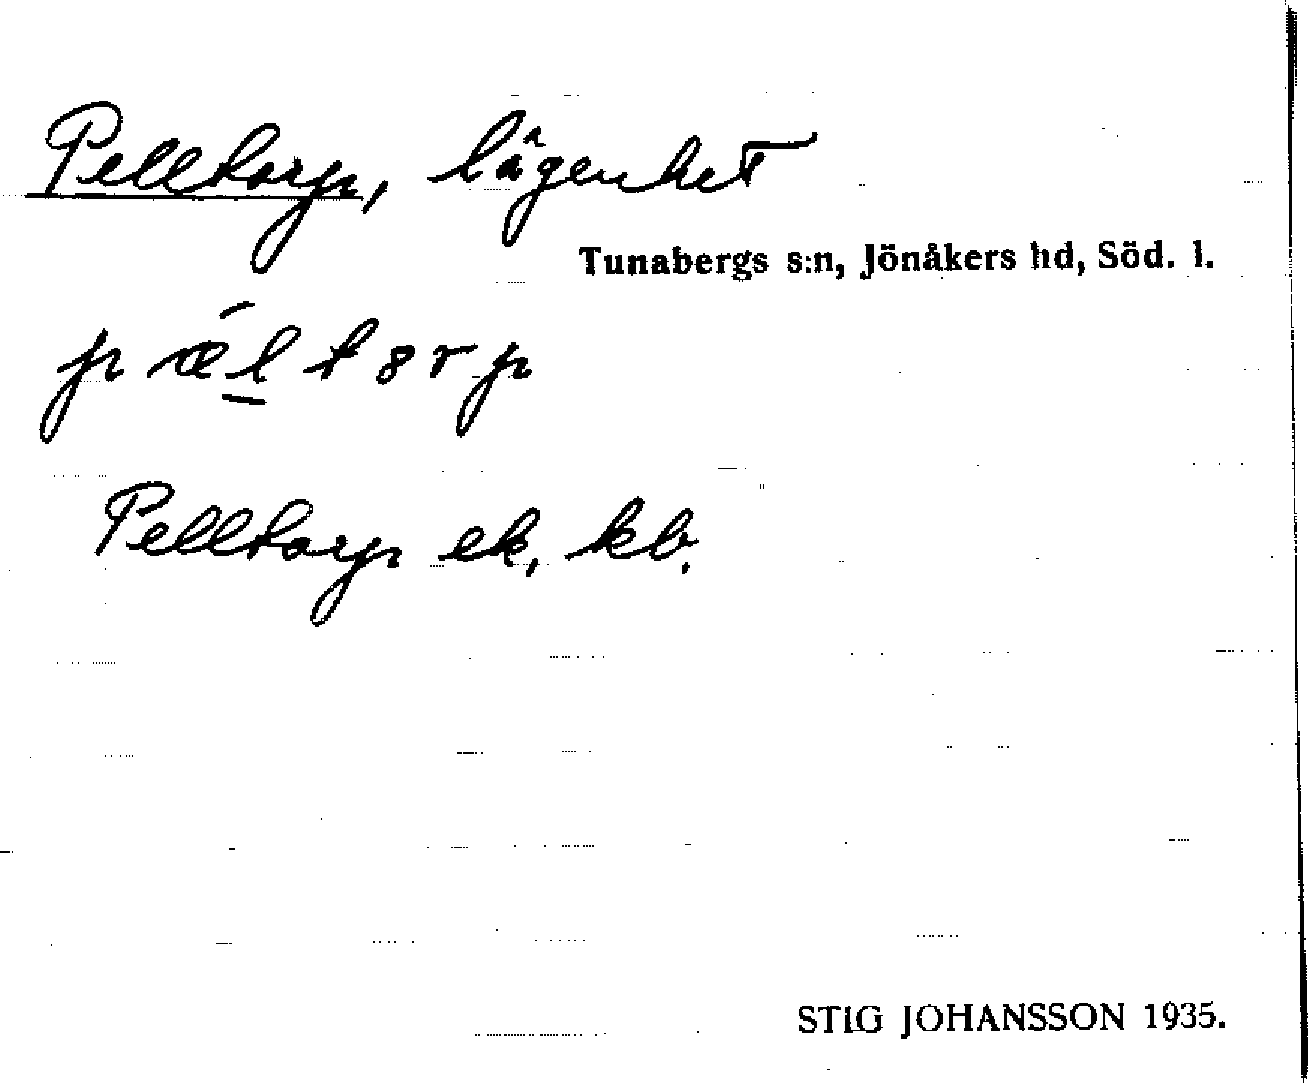 Pelltorp, lägenhet
Tunabergs s:n, Jönåkers hd, Söd. l.
p ǽl t o r p
Pelltorp ek, kb.
STIG JOHANSSON 1935.